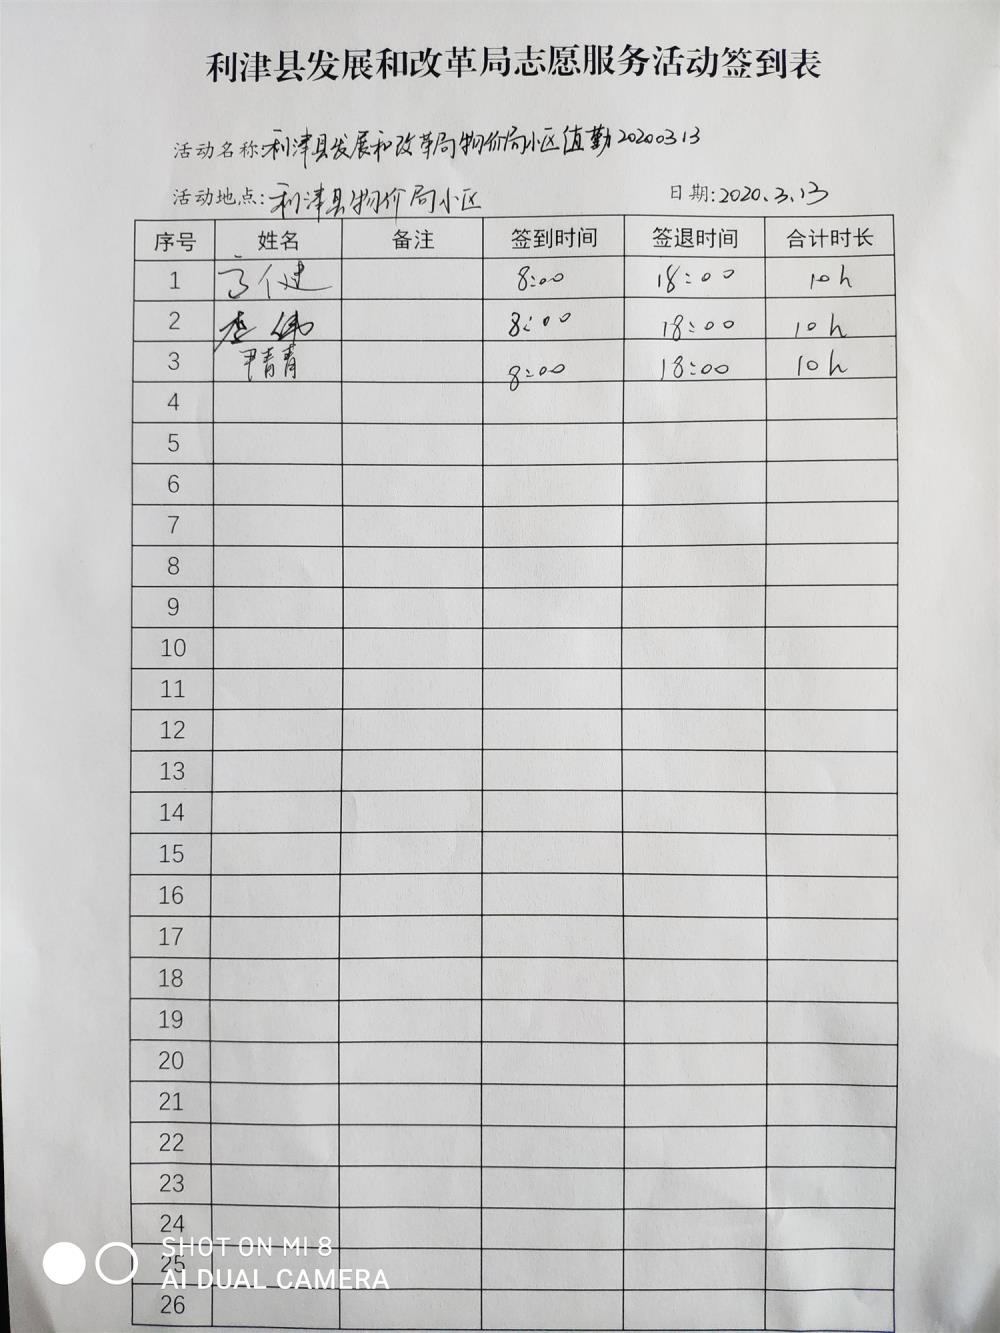 利津县发展和改革局志愿服务活动签到表
活动名称:利津县发展和改革局物价局小区值勤20200313
活动地点:利津县物价局小区 日期:2020.3.13
序号 姓名 备注 签到时间 签退时间 合计时长
1 高健 8:00 18:00 10h
2 李伟 8:00 18:00 10h
3 青青 8:00 18:00 10h
4
5
6
7
8
9
10
11
12
13
14
15
16
17
18
19
20
21
22
23
24
SHOT ON MI 8
25
AI DUAL CAMERA
26